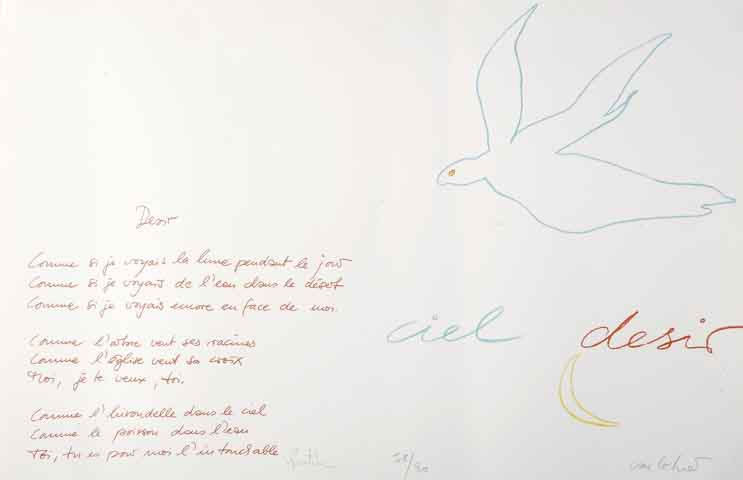 Desir
Comme si je voyais la lune pendant le jour
Comme si je voyais de l'eau dans le désert
Comme si je voyais encore en face de moi.
Comme l'arbre veut ses racines
Comme l'église veut sa croix
Moi, je te veux, toi.
Comme l'hirondelle dans le ciel
Comme le poisson dans l'eau
Toi, tu es pour moi l'intouchable
ciel desir
/90